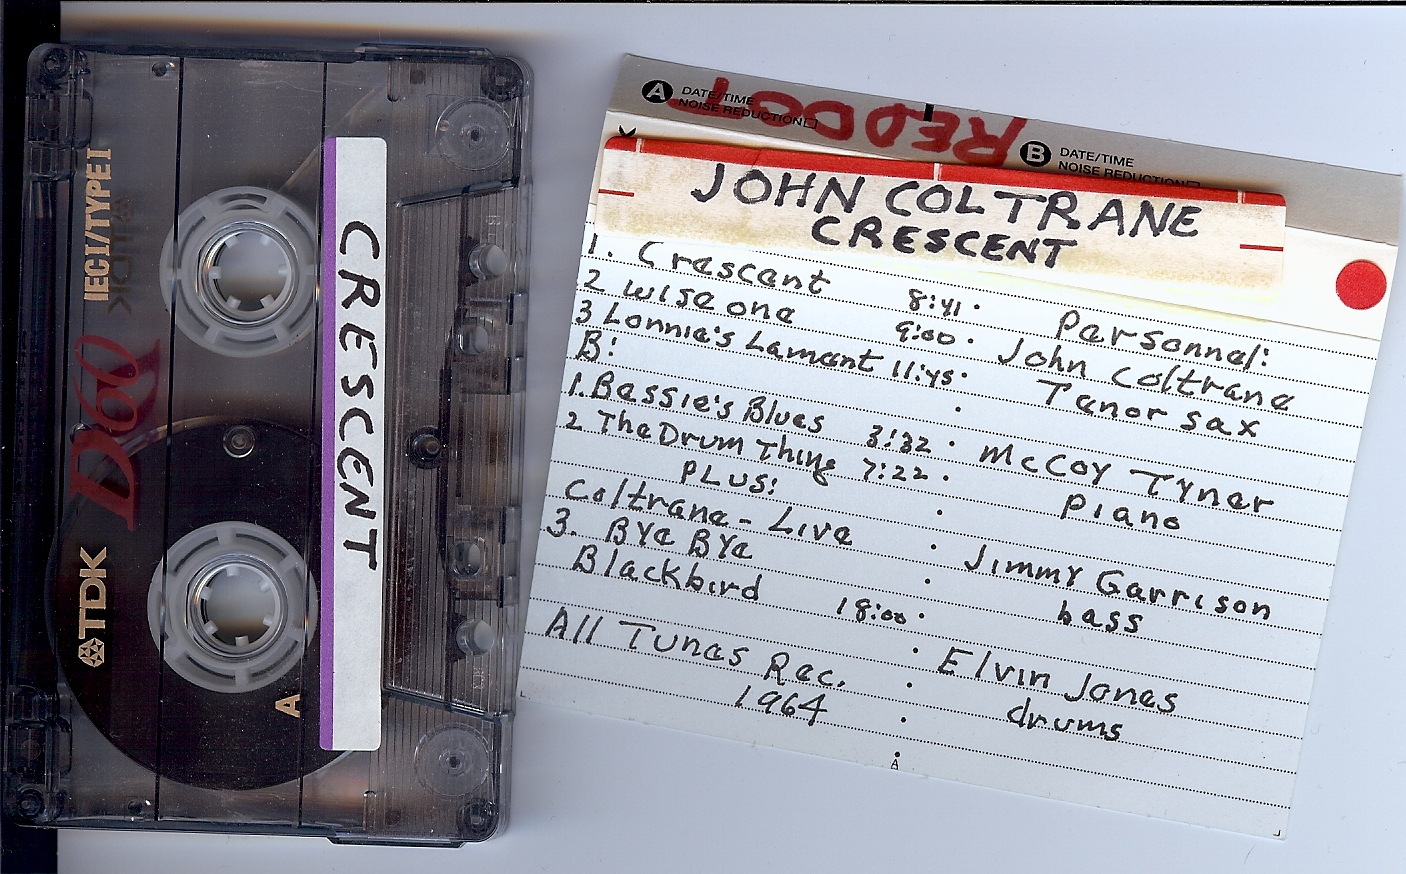 IECI/TYPE I
D60
TDK
A
CRESCENT
A DATE/TIME
NOISE REDUCTION
RED DOT
B DATE/TIME
NOISE REDUCTION
JOHN COLTRANE
CRESCENT
1. Crescent 8:41
2 Wise one 9:00
3 Lonnie's Lament 11:45
B:
1. Bessie's Blues 3:32
2 The Drum Thing 7:22
PLUS:
Coltrane - Live
3. Bye Bye
Blackbird 18:00
All Tunes Rec.
1964
Personnel:
John Coltrane
Tenor sax
McCoy Tyner
Piano
Jimmy Garrison
bass
Elvin Jones
drums